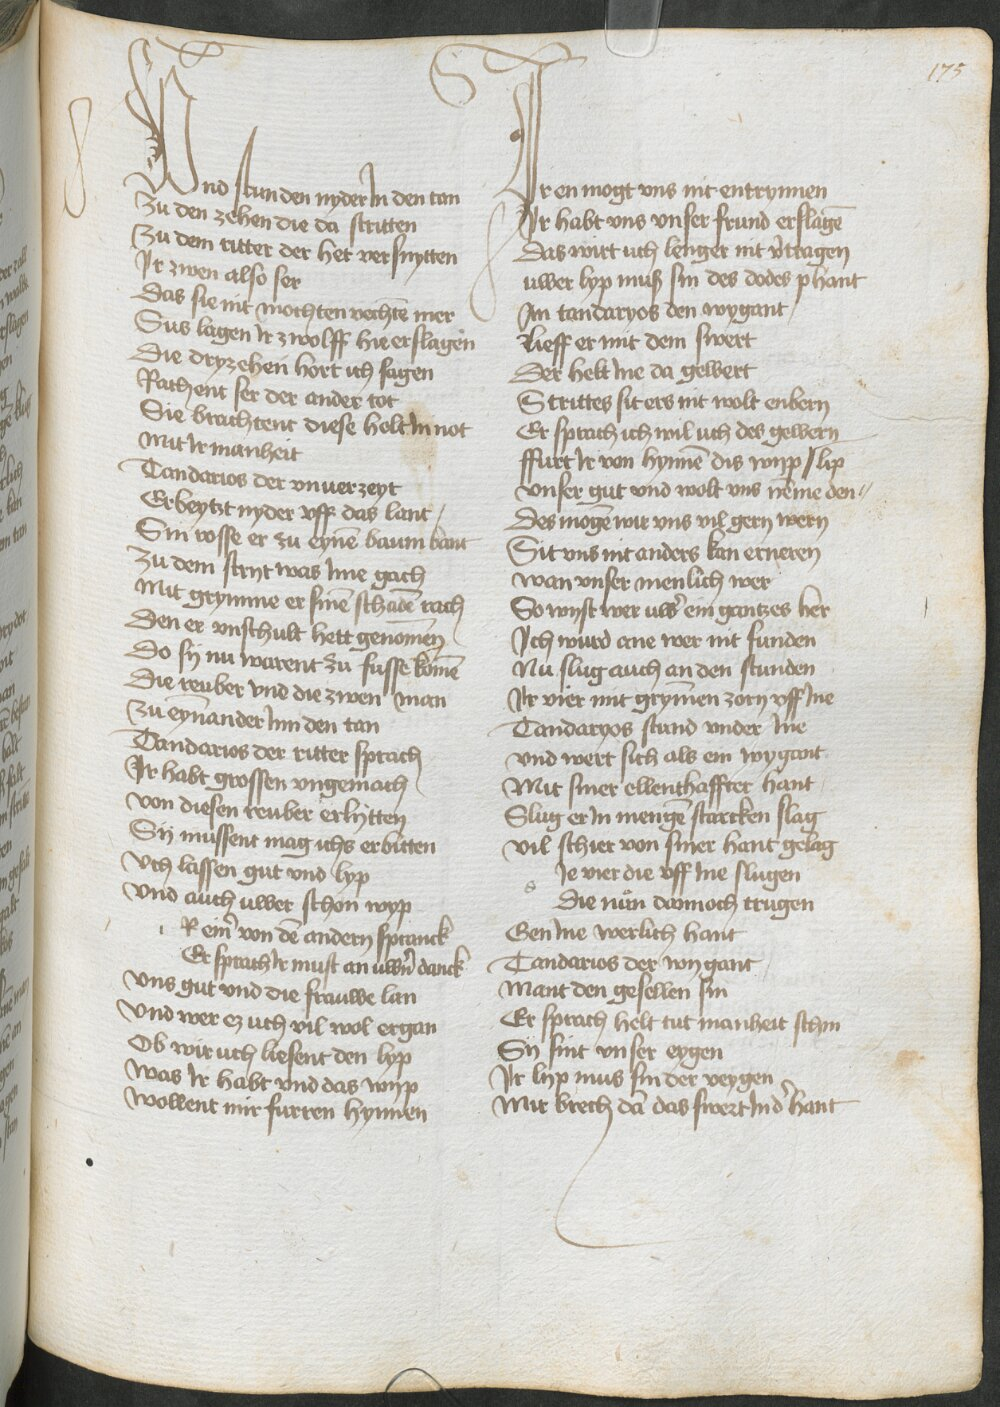 175
Und stunden nyder In den tan
Zu den zehen die da stritten
Zu dem ritter der het versnytten
Ir zwen also ser
Das sie nit mochten vechtē mer
Sus lagen Ir zwolff hie erslagen
Die dryzehen hort ich sagen
ser der ander tot
Sie brachtent diese helt In not
Mit Ir manheit
Tandarios der unverzeyt
Er beytzt nyder uff das lant
Sin rosse er zu eynē baum bant
Zu dem stryt was Ime gach
Mit grymme er sinē schadē rach
Den er unschult hett genomēn
Do sij nu warent zu fusse komē
Die reuber und die zwen man
Zu eynander Inn den tan
Tandarios der ritter sprach
Ir habt grossen ungemach
von diesen reuber erlytten
Sij mussent mag ichs erbitten
Uch lassen gut und lyp
und auch uwer schon wyp
R ein' von dē andern spranck
Er sprach Ir must an uw'n danck
Uns gut und die frauwe lan
Und wer ez uch vil wol ergan
Ob wir uch liesent den lyp
Was Ir habt und das wijp
Wollent mir furren hynnen
Ir en mogt uns nit entrynnen
Ir habt uns unser frund erslagē
Das wirt uch lenger nit v'tragen
uwer lyp muß sin des dodes phant
Im tandaryos den wygant
Lieff er mit dem swert
Der helt Ime da gewert
Strittes sit ers nit wolt enbern
Er sprach ich wil uch des gewern
ffurt Ir von hynnē dis wijp / lip
Unser gut und wolt uns nēme den
Des mogē wir uns vil gern wern
Sit uns nit anders kan erneren
wan unser menlich wer
So wyst wer uw' ein gantzes her
Ich wurd ane wer nit funden
Nu slug auch an den stunden
Ir vier mit grymmen zorn uff Ine
Tandaryos stund under Ine
und wert sich als ein wygant
Mit siner ellenthaffter hant
Slug er In mengē starcken slag
vil schier von siner hant gelag
Ie vier die uff Ine slugen
Die nun dannoch trugen
Gen Ine werlich hant
Tandarios der wygant
Mant den gesellen sin
Er sprach helt tut manheit schin
Sij sint unser eygen
Ir lijp mus sin der veygen
Mir brech dā das swert Ind' hant